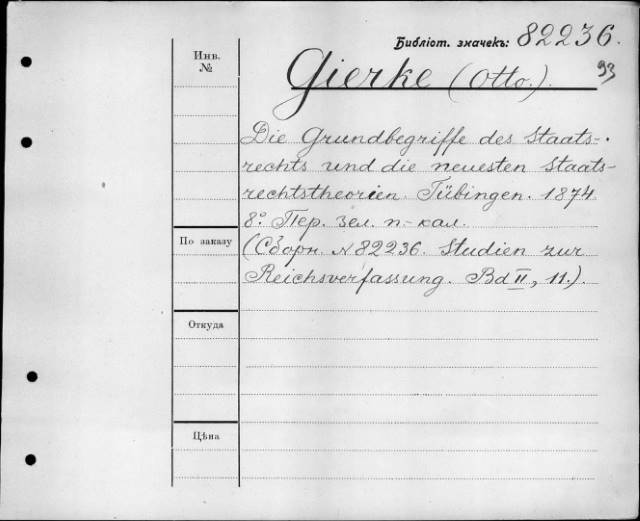 Библіот. значекъ: 82236.
93
Инв. №
Gierke (Otto.).
Die Grundbegriffe des Staats-
rechts und die neuesten Staats-
rechtstheorien. Tübingen. 1874
8º. Пер. зел. п.-кал.
По заказу
(Сборн. N 82236. Studien zur
Reichsverfassung. Bd II, 11.).
Откуда
Цѣна